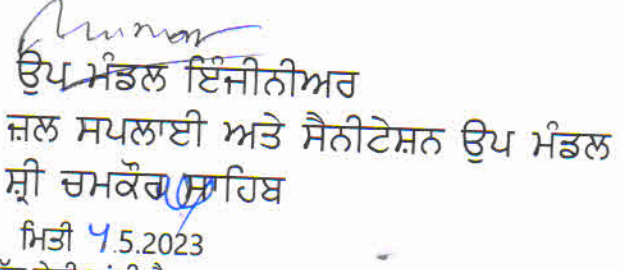 ਉਪ ਮੰਡਲ ਇੰਜੀਨੀਅਰ
ਜਲ ਸਪਲਾਈ ਅਤੇ ਸੈਨੀਟੇਸ਼ਨ ਉਪ ਮੰਡਲ
ਸ਼੍ਰੀ ਚਮਕੌਰ ਸਾਹਿਬ
ਮਿਤੀ 4.5.2023